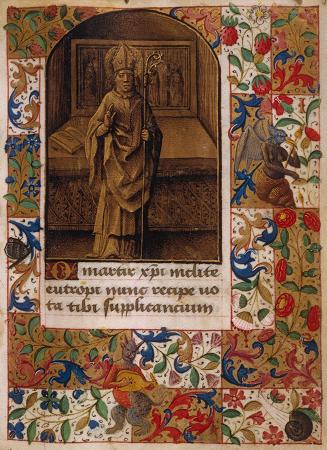 O martir xp̄i inclite
eutropi nunc recipe uo
ta tibi supplicancium